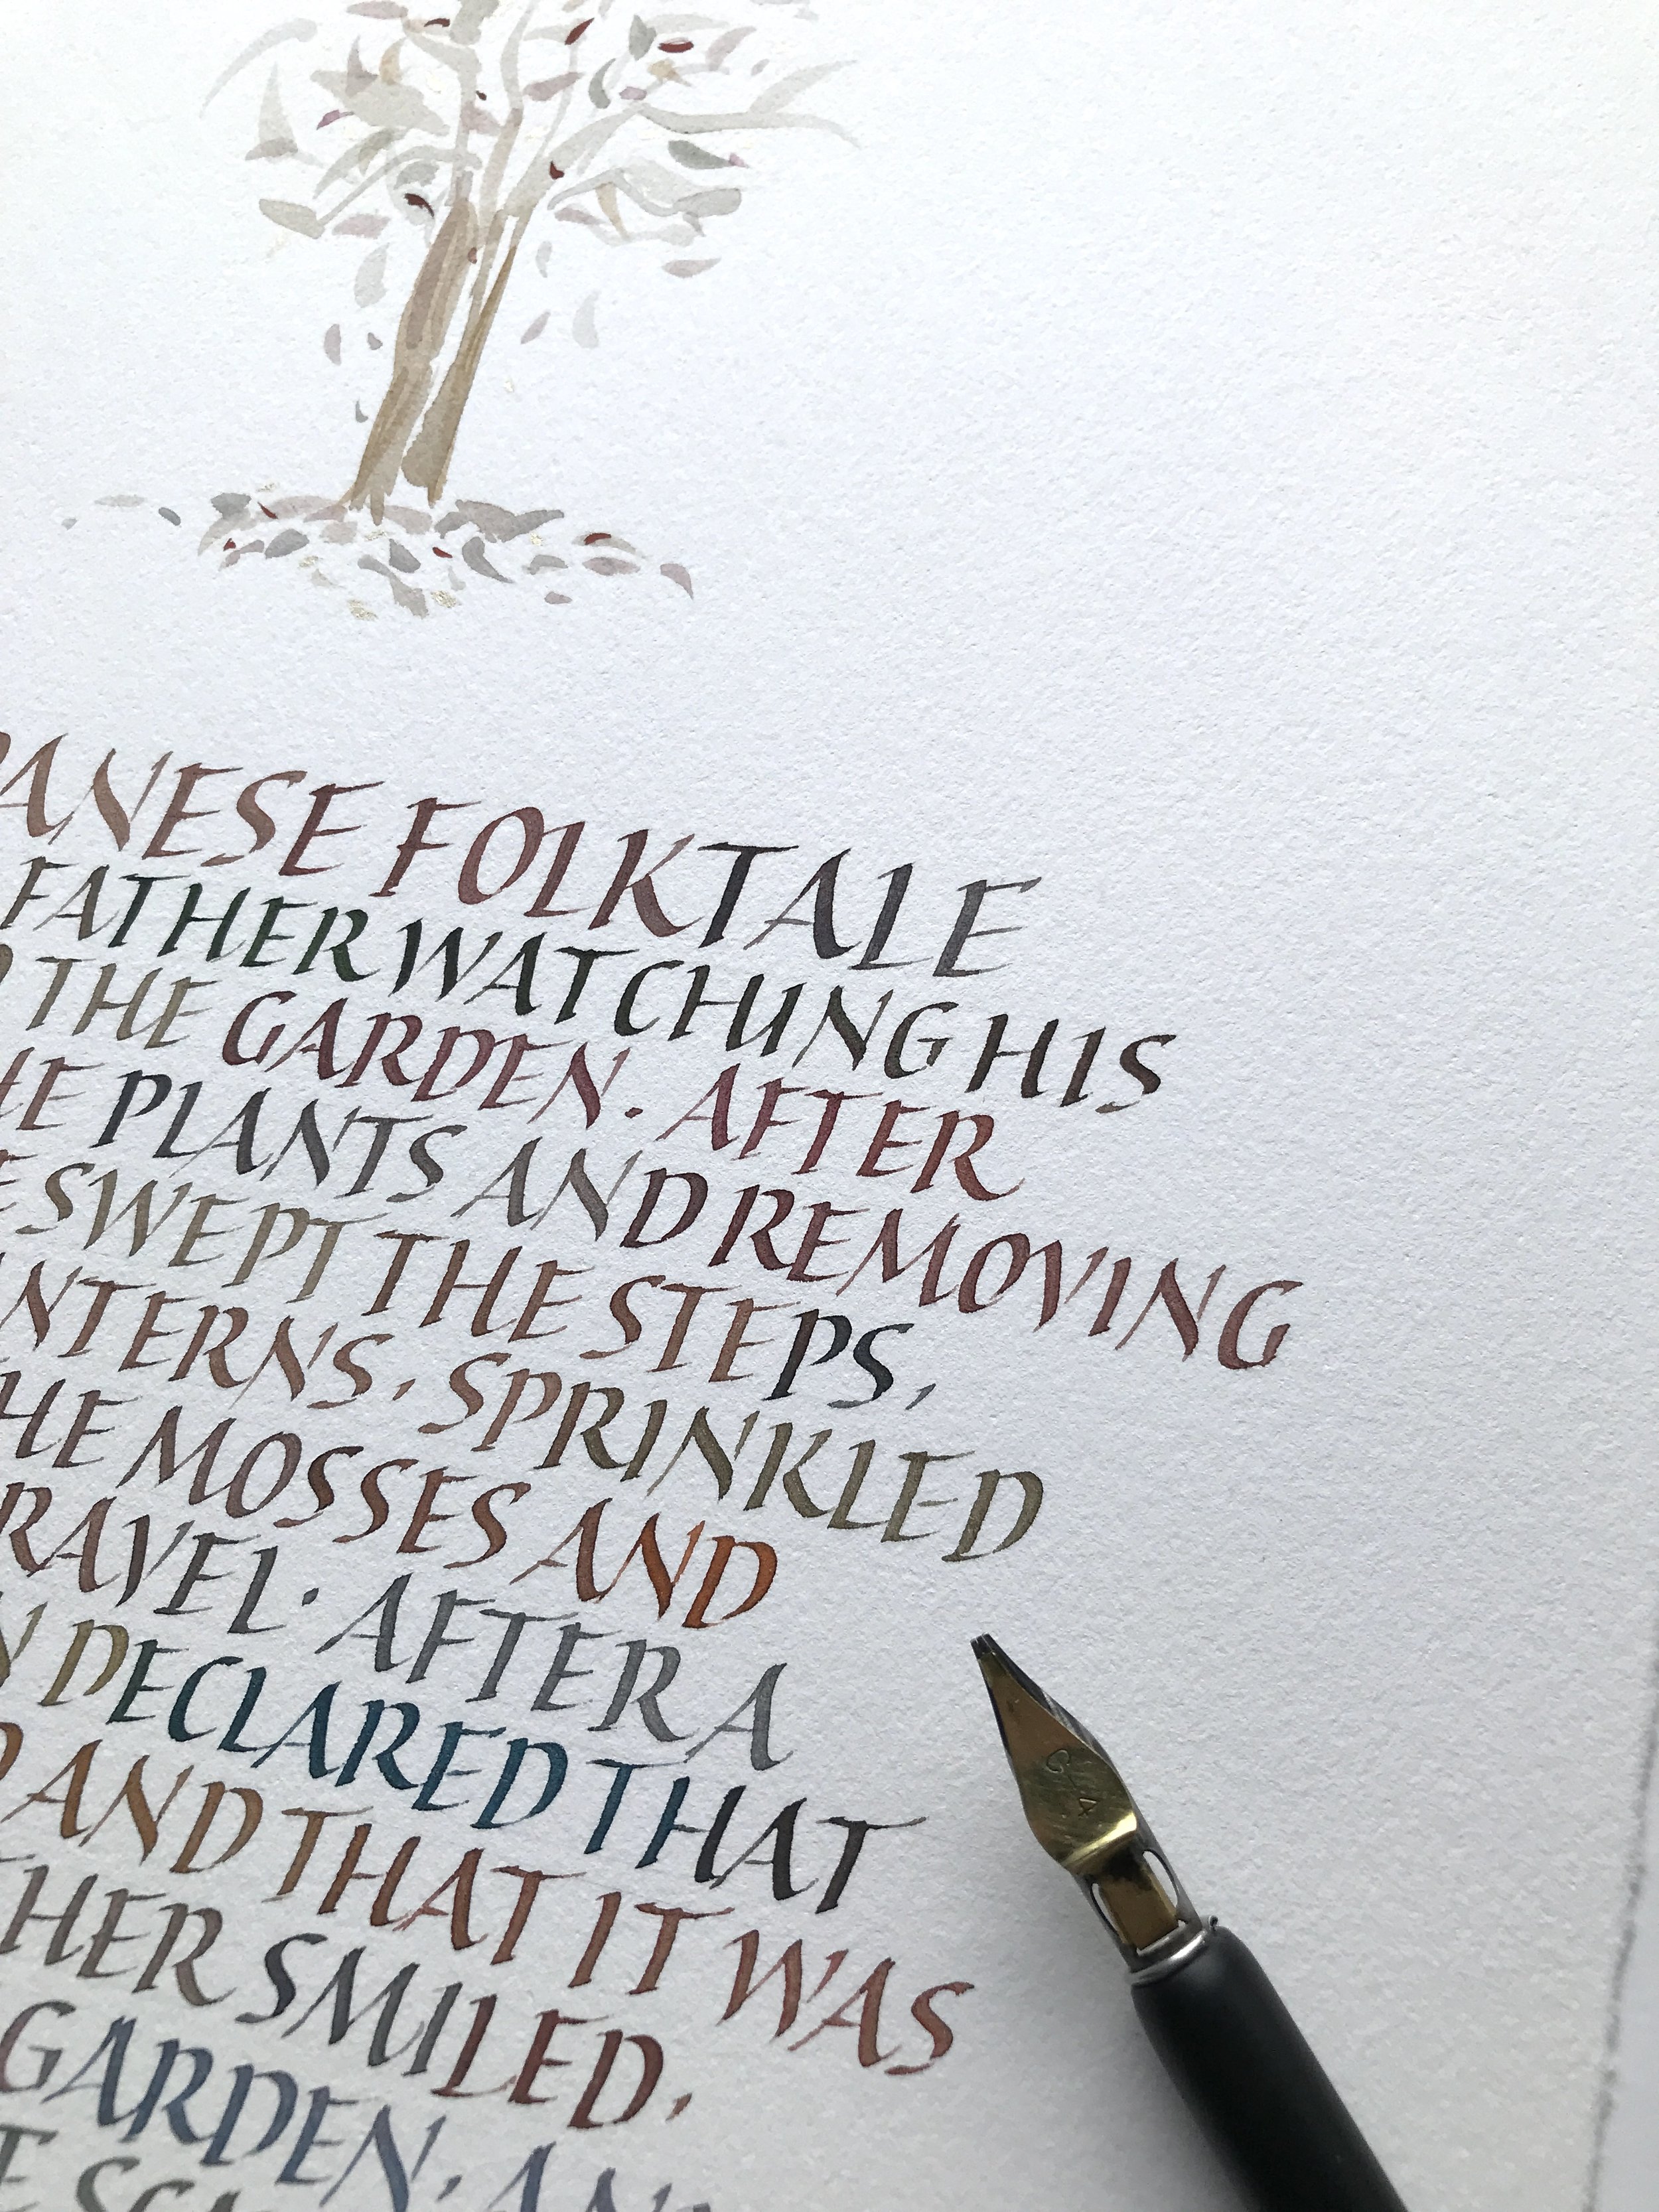 ANESE FOLKTALE
FATHER WATCHING HIS
THE GARDEN. AFTER
HE PLANTS AND REMOVING
E SWEPT THE STEPS,
NTERNS, SPRINKLED
HE MOSSES AND
RAVEL. AFTER A
N DECLARED THAT
AND THAT IT WAS
HER SMILED,
GARDEN. AN
E SCA
C-4